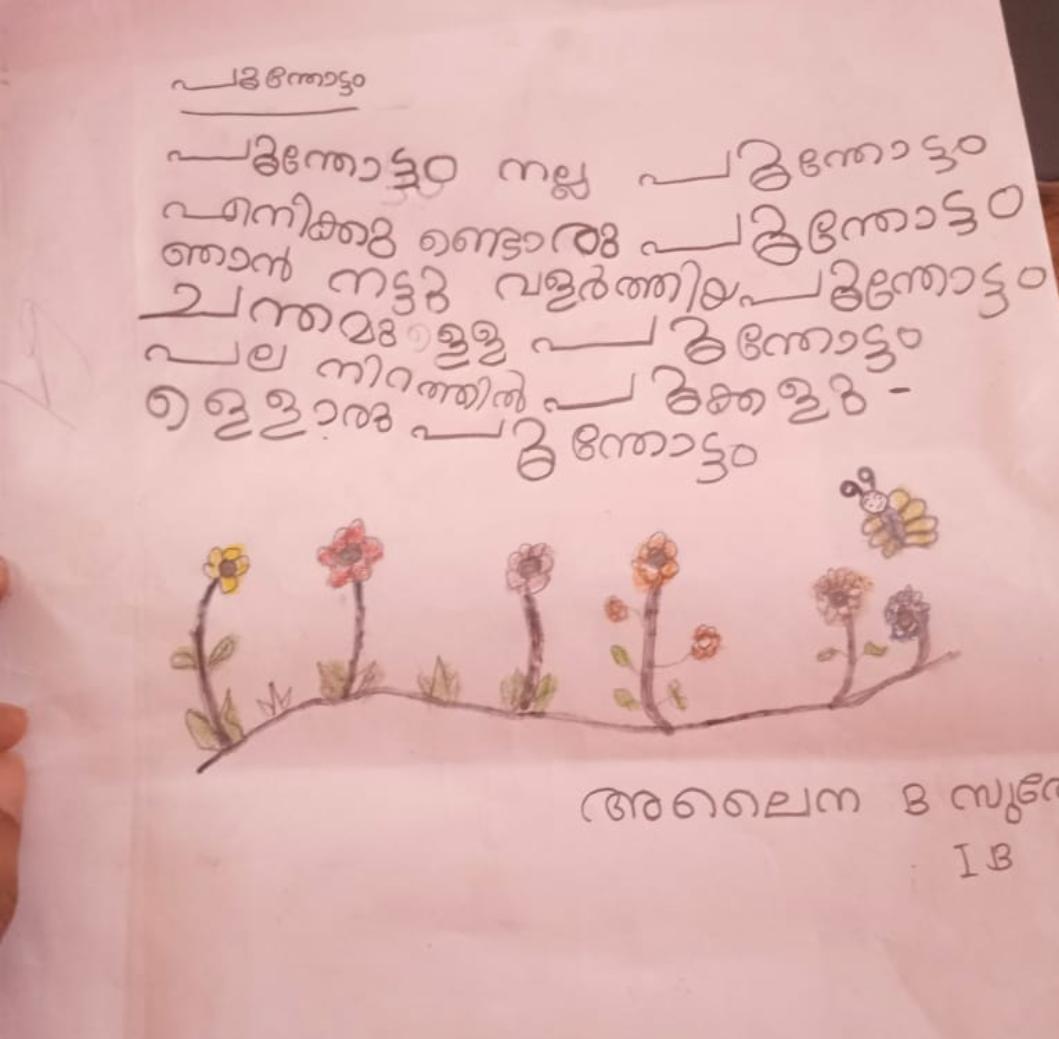 പൂന്തോട്ടം
പൂന്തോട്ടം നല്ല പൂന്തോട്ടം
എനിക്കു ണ്ടൊരു പൂന്തോട്ടം
ഞാൻ നട്ടു വളർത്തിയ പൂന്തോട്ടം
ചന്തമു ള്ള പൂന്തോട്ടം
പല നിറത്തിൽ പൂക്കളു -
ള്ളൊരു പൂന്തോട്ടം
അലൈന B
I B